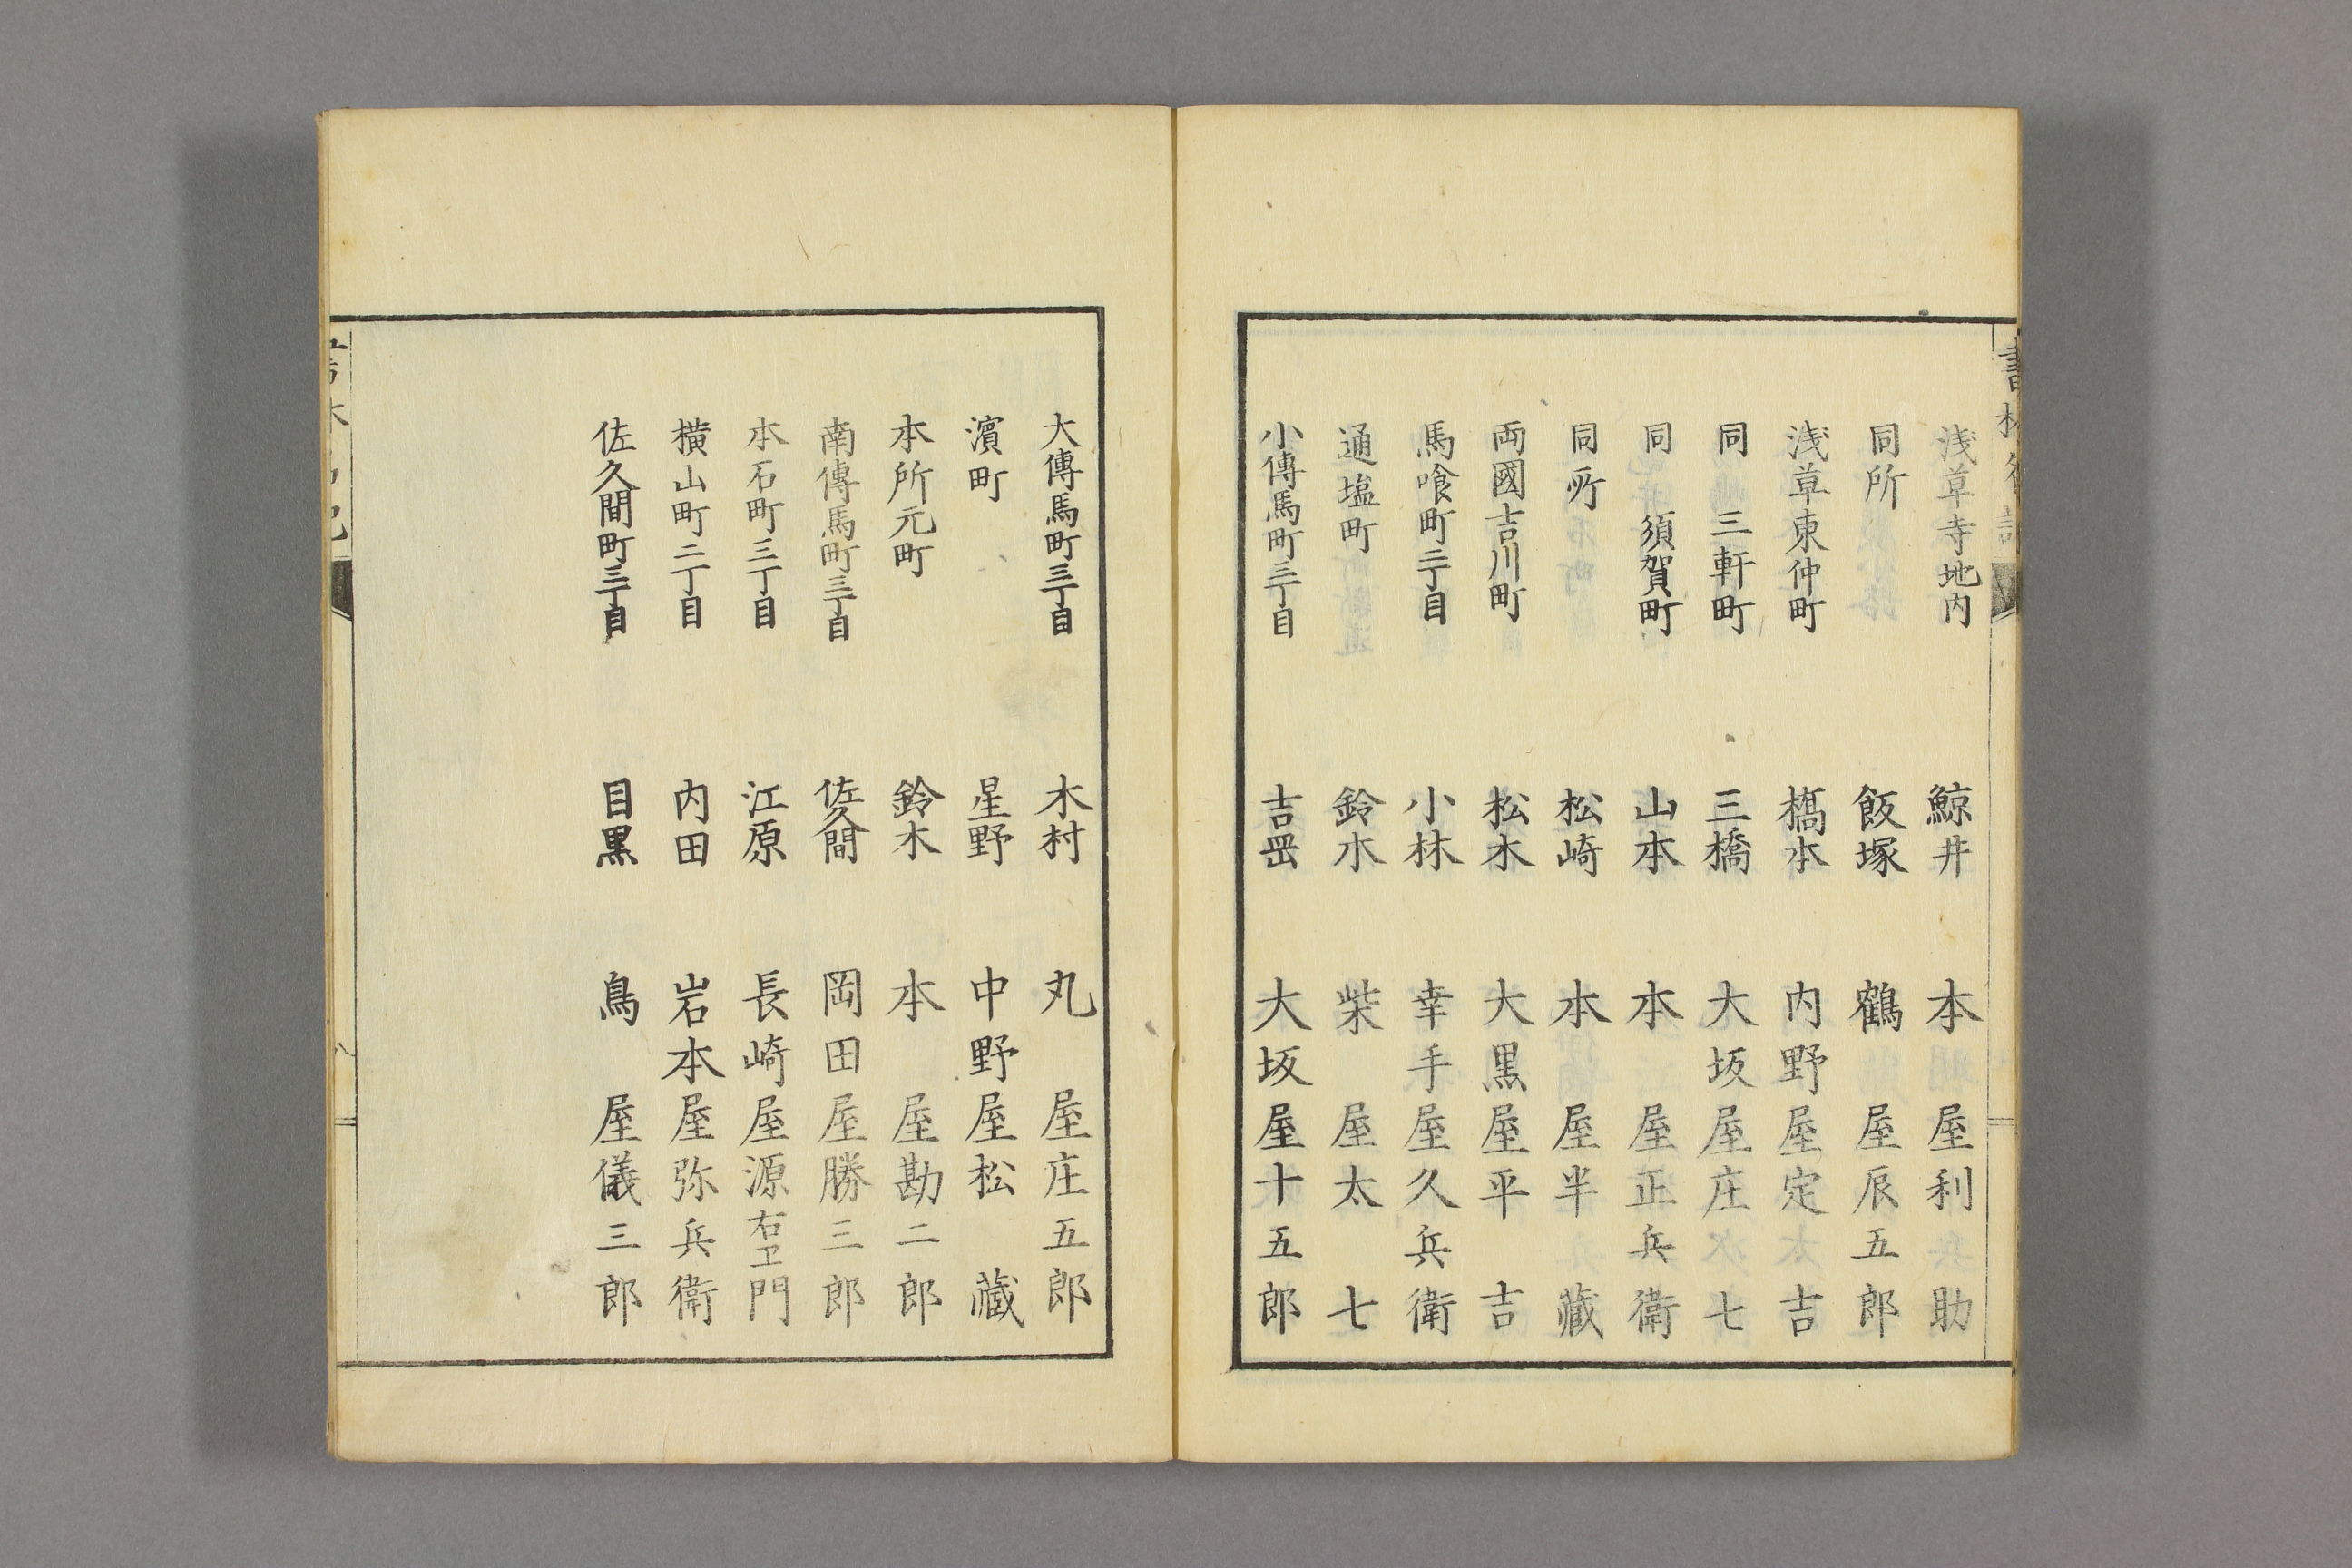 浅草寺地内 鯨井 本屋利助
同所 飯塚 鶴屋辰五郎
浅草東仲町 橋本 内野屋定吉
同三軒町 三橋 大坂屋庄七
同須賀町 山本 本屋正兵衛
同所 松崎 本屋半藏
両國吉川町 松木 大黒屋平吉
馬喰町二丁目 小林 幸手屋久兵衛
通塩町 鈴木 柴屋太七
小傳馬町三丁目 吉岡 大坂屋十五郎
大傳馬町三丁目 木村 丸屋庄五郎
濱町 星野 中野屋松藏
本所元町 鈴木 本屋勘二郎
南傳馬町三丁目 佐久間 岡田屋勝三郎
本石町三丁目 江原 長崎屋源右エ門
横山町二丁目 内田 岩本屋弥兵衛
佐久間町三丁目 目黒 鳥屋儀三郎